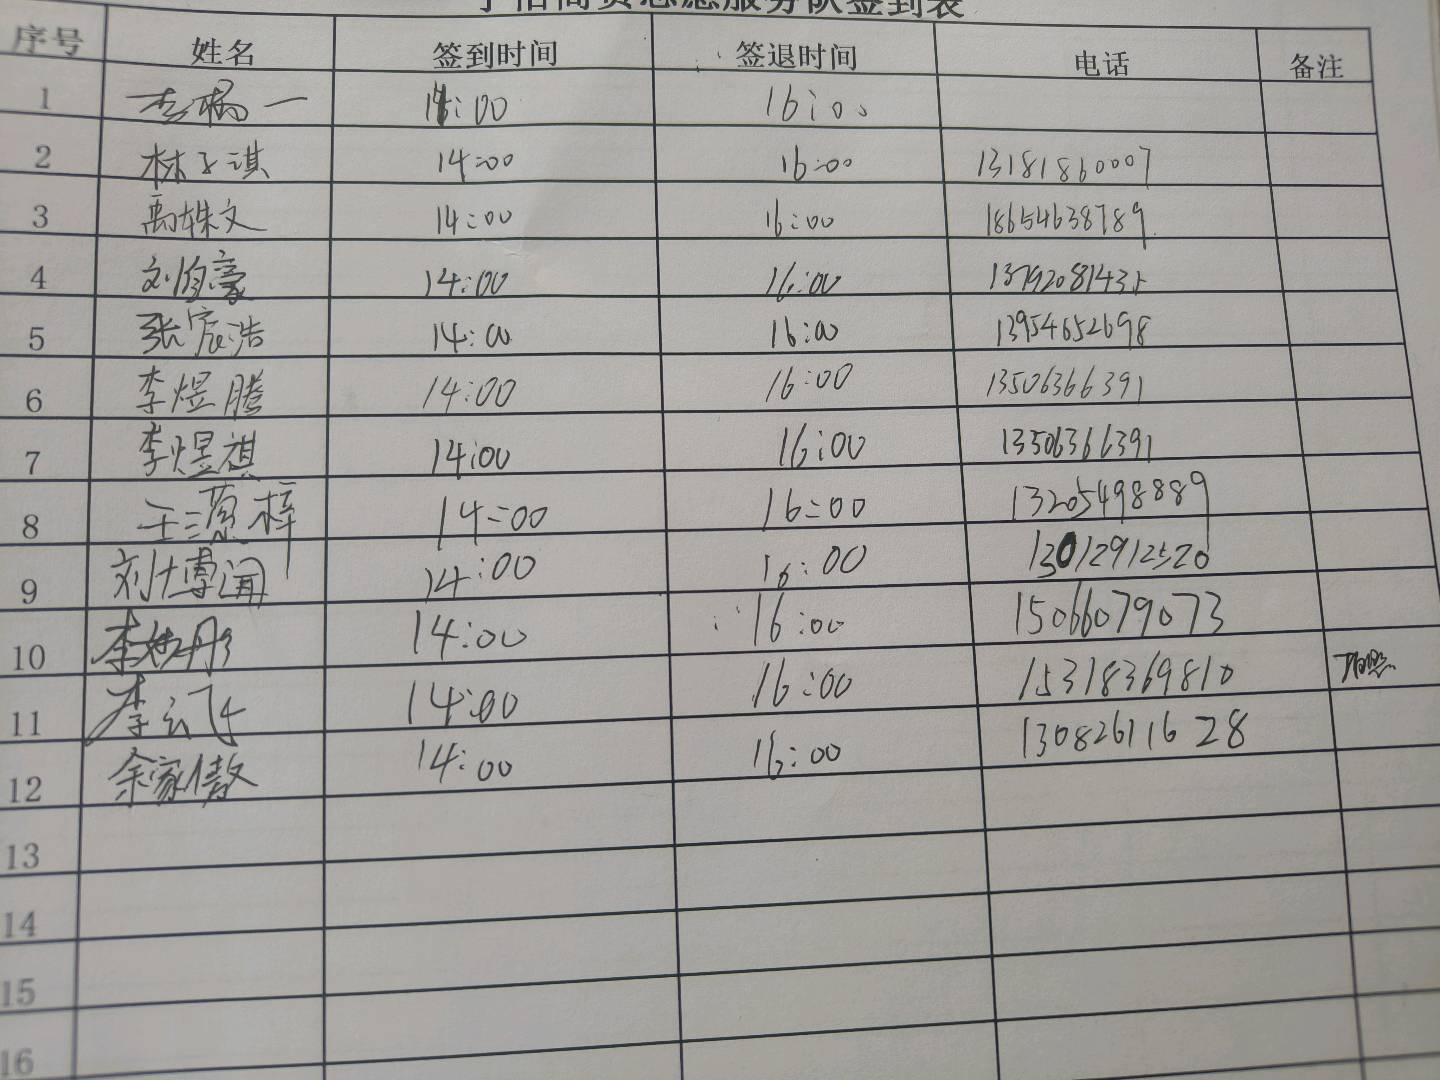 志愿服务队签到表
序号 姓名 签到时间 签退时间 电话 备注
1 14:00 16:00
2 林子淇 14:00 16:00 13181860007
3 禹姝文 14:00 16:00 18654638789
4 刘 豪 14:00 16:00
5 张宸浩 14:00 16:00 13954652698
6 李煜腾 14:00 16:00 13506366391
7 李煜祺 14:00 16:00 13506366391
8 王 梓 14:00 16:00 13205498889
9 刘博闻 14:00 16:00 13012912520
10 李 彤 14:00 16:00 15066079073
11 李云飞 14:00 16:00 15318369810
12 余家傲 14:00 16:00 13082611628
13
14
15
16